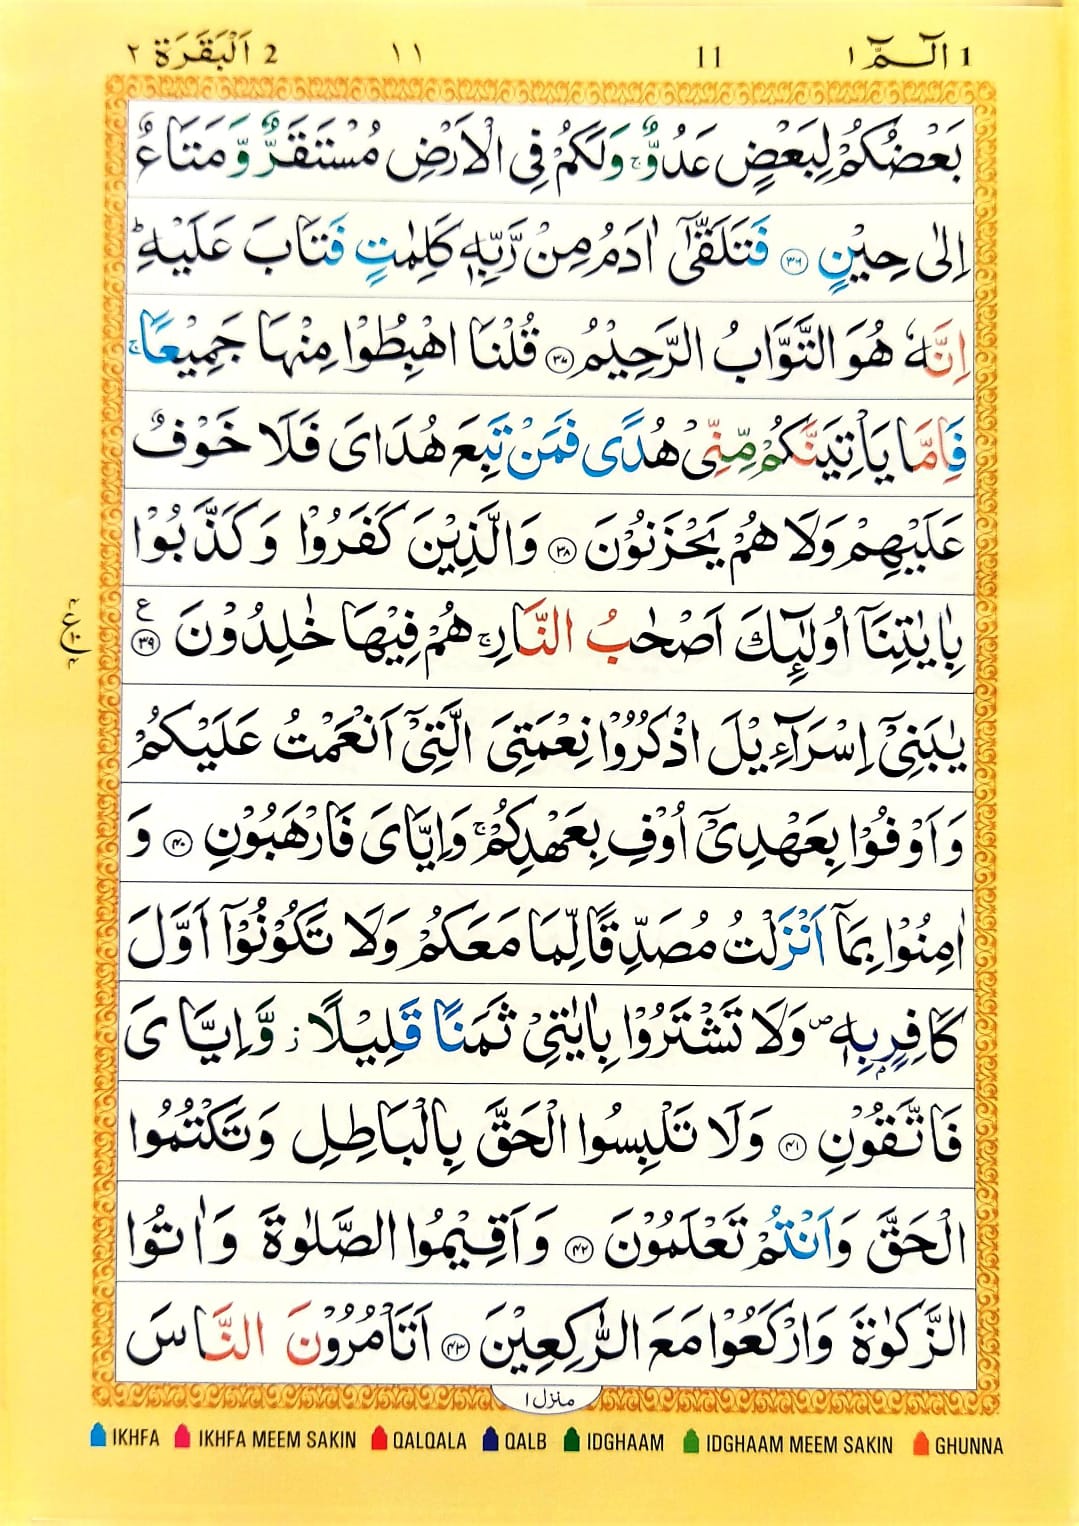 1 الٓـمّٓ ١ 11 ١١ 2 اَلْبَقَرَة ٢
بَعْضُكُمْ لِبَعْضٍ عَدُوٌّ ۚ وَلَكُمْ فِی الْاَرْضِ مُسْتَقَرٌّ وَّ مَتَاعٌ
اِلٰی حِیْنٍ ۝۳۶ فَتَلَقّٰۤی اٰدَمُ مِنْ رَّبِّهٖ كَلِمٰتٍ فَتَابَ عَلَیْهِ ؕ
اِنَّهٗ هُوَ التَّوَّابُ الرَّحِیْمُ ۝۳۷ قُلْنَا اهْبِطُوْا مِنْهَا جَمِیْعًا ۚ
فَاِمَّا یَاْتِیَنَّكُمْ مِّنِّیْ هُدًی فَمَنْ تَبِعَ هُدَایَ فَلَا خَوْفٌ
عَلَیْهِمْ وَلَا هُمْ یَحْزَنُوْنَ ۝۳۸ وَالَّذِیْنَ كَفَرُوْا وَكَذَّبُوْا
بِاٰیٰتِنَاۤ اُولٰٓىِٕكَ اَصْحٰبُ النَّارِ ۚ هُمْ فِیْهَا خٰلِدُوْنَ ۝۳۹ ع
یٰبَنِیْۤ اِسْرَآءِیْلَ اذْكُرُوْا نِعْمَتِیَ الَّتِیْۤ اَنْعَمْتُ عَلَیْكُمْ
وَاَوْفُوْا بِعَهْدِیْۤ اُوْفِ بِعَهْدِكُمْ ۚ وَاِیَّایَ فَارْهَبُوْنِ ۝۴۰ وَ
اٰمِنُوْا بِمَاۤ اَنْزَلْتُ مُصَدِّقًا لِّمَا مَعَكُمْ وَلَا تَكُوْنُوْۤا اَوَّلَ
كَافِرٍۭ بِهٖ ۪ وَلَا تَشْتَرُوْا بِاٰیٰتِیْ ثَمَنًا قَلِیْلًا ؗ وَّاِیَّایَ
فَاتَّقُوْنِ ۝۴۱ وَلَا تَلْبِسُوا الْحَقَّ بِالْبَاطِلِ وَتَكْتُمُوا
الْحَقَّ وَاَنْتُمْ تَعْلَمُوْنَ ۝۴۲ وَاَقِیْمُوا الصَّلٰوةَ وَاٰتُوا
الزَّكٰوةَ وَارْكَعُوْا مَعَ الرّٰكِعِیْنَ ۝۴۳ اَتَاْمُرُوْنَ النَّاسَ
منزل ١
IKHFA IKHFA MEEM SAKIN QALQALA QALB IDGHAAM IDGHAAM MEEM SAKIN GHUNNA